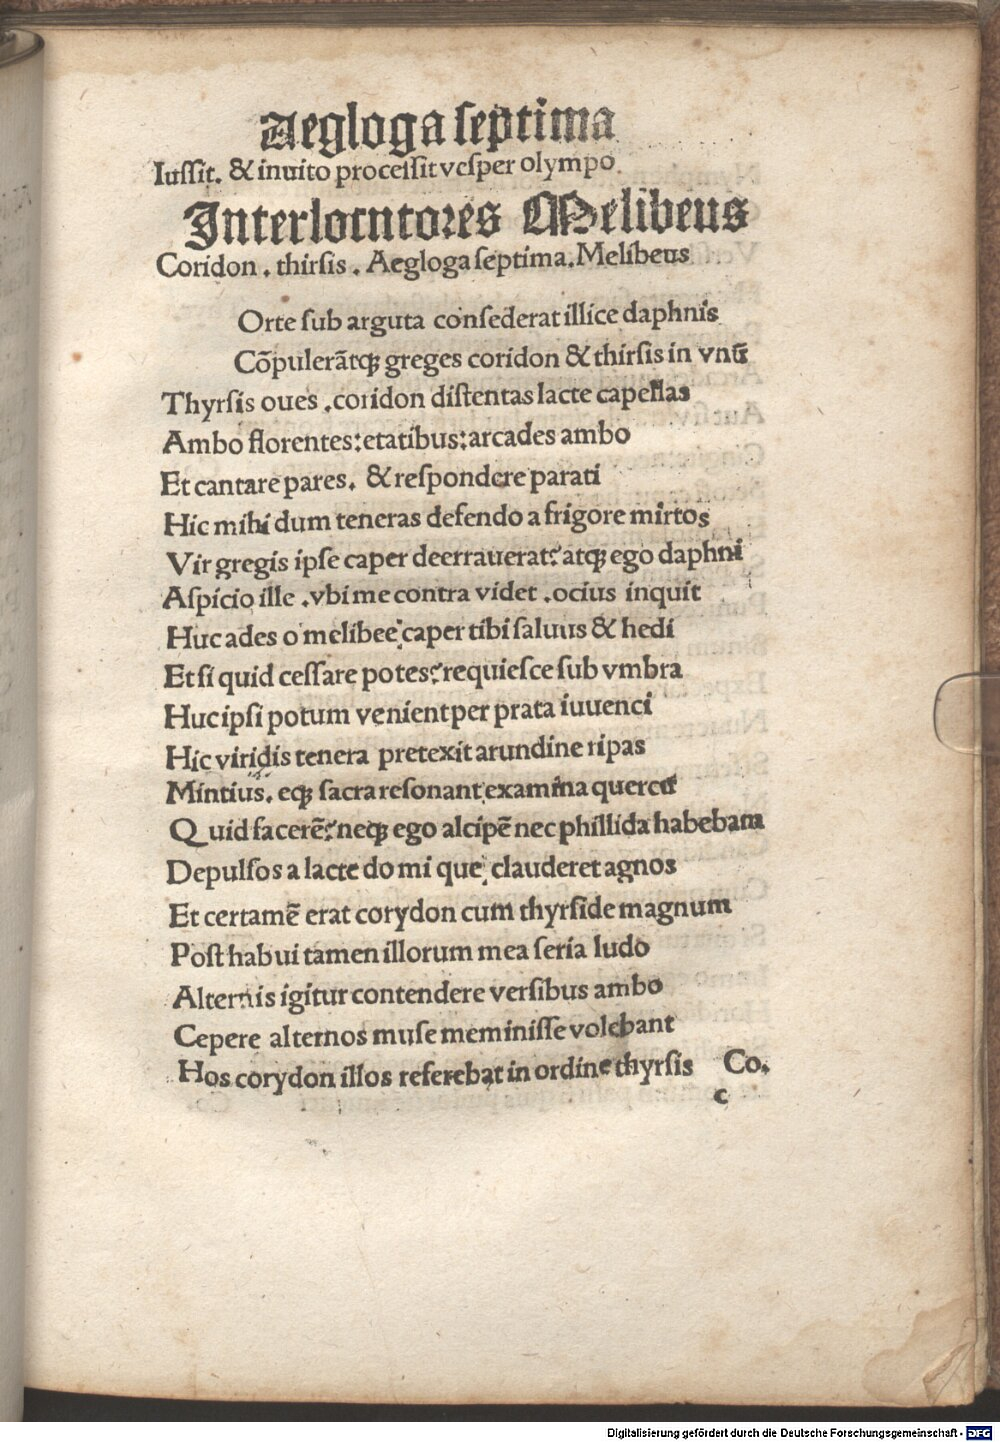 Aegloga ſeptima
Iuſſit. & inuito proceſſit veſper olympo.
Interlocutores Melibeus
Coridon . thirſis . Aegloga ſeptima. Melibeus
Orte ſub arguta conſederat illice daphnis
Cōpulerātqꝫ greges coridon & thirſis in vnū
Thyrſis oues .coridon diſtentas lacte capellas
Ambo florentes: etatibus: arcades ambo
Et cantare pares. & reſpondere parati
Hic mihi dum teneras defendo a frigore mirtos
Vir gregis ipſe caper deerrauerat: atqꝫ ego daphni
Aſpicio ille .vbi me contra videt .ocius inquit
Huc ades o melibee: caper tibi ſaluus & hedi
Et ſi quid ceſſare potes: requieſce ſub vmbra
Huc ipſi potum venient per prata iuuenci
Hic viridis tenera pretexit arundine ripas
Mintius. eqꝫ ſacra reſonant examina quercu
Quid facerē: neqꝫ ego alcipē nec phillida habebam
Depulſos a lacte do mi que clauderet agnos
Et certamē erat corydon cum thyrſide magnum
Poſt habui tamen illorum mea ſeria ludo
Alternis igitur contendere verſibus ambo
Cepere alternos muſe meminiſſe volebant
Hos corydon illos referebat in ordine thyrſis Co.
c
Digitalisierung gefördert durch die Deutsche Forschungsgemeinschaft - DFG